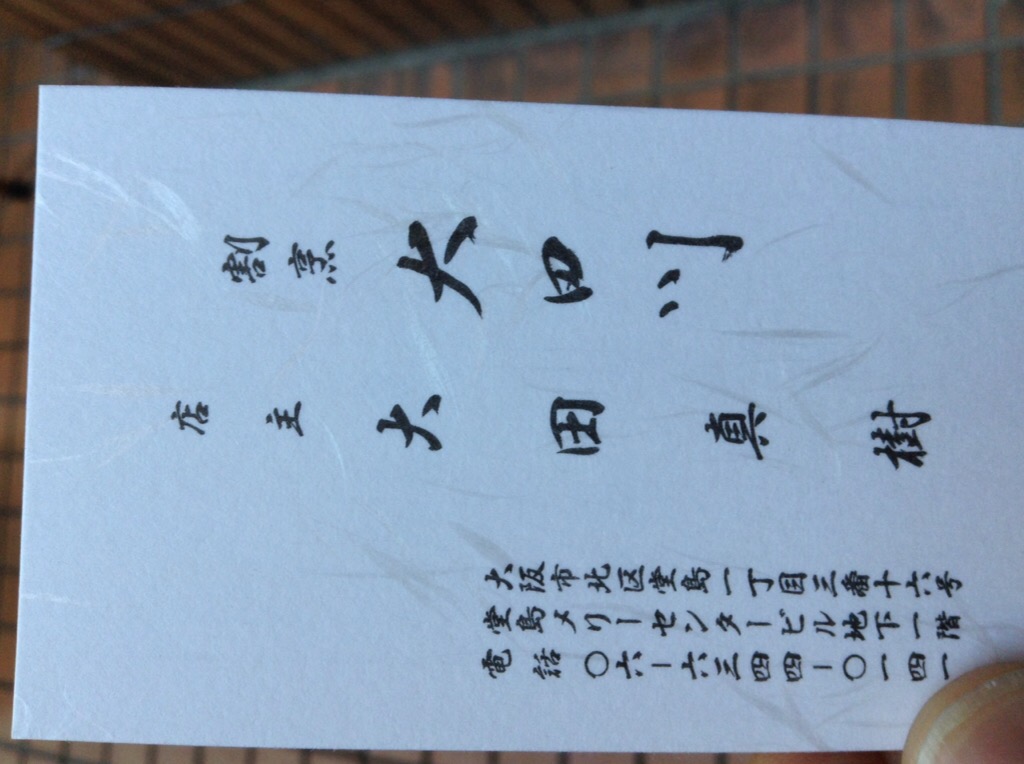 割烹 大田川
店主 大田真樹
大阪市北区堂島一丁目三番十六号
堂島メリーセンタービル地下一階
電話 〇六ー六三四四ー〇一四一